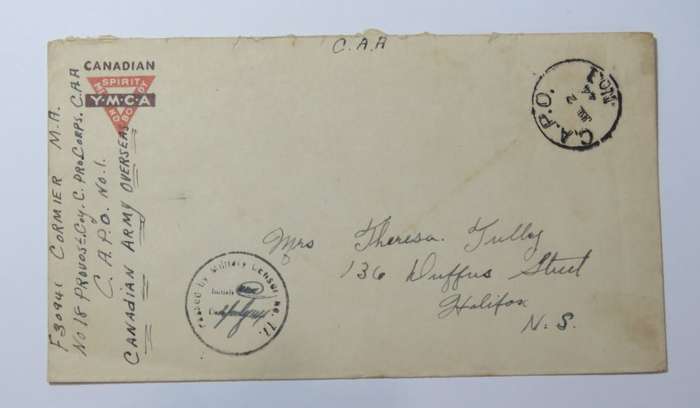 C.A.A
CANADIAN
SPIRIT
MIND
BODY
Y·M·C·A
F30941 CORMIER M.A.
No 18 PROVOST. COY. C. PRO. CORPS. C.A.A
C.A.P.O. No. 1.
CANADIAN ARMY OVERSEAS
C.A.P.O.
2
44
NO. 1
Mrs Theresa Tulloy
136 Duffus Street
Halifax
N.S.
Passed by Military Censor No. 11.
Initials